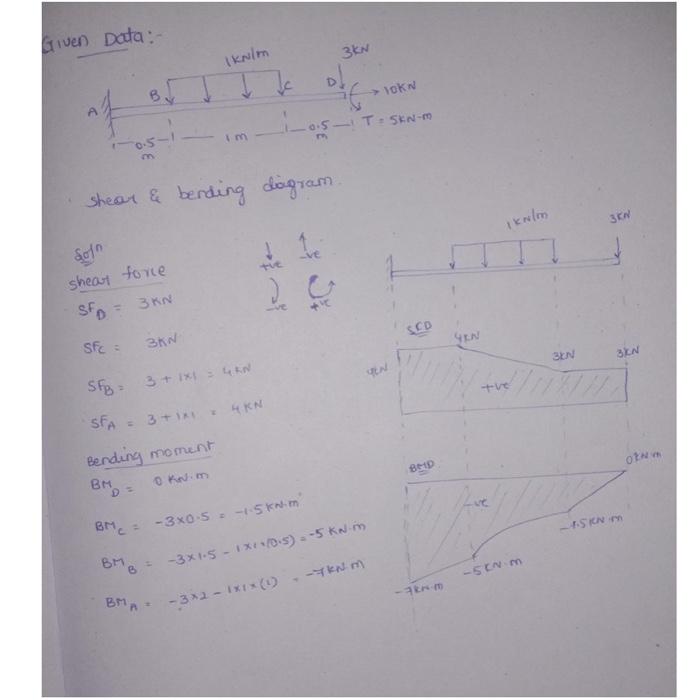 Given Data:-
1KN/m 3KN
A B C D 10KN
0.5 m 1m 0.5 m T = 5KN-m
shear & bending diagram.
Soln
shear force
+ve -ve
-ve +ve
SFD = 3KN
SFC = 3KN
SFB = 3 + 1x1 = 4KN
SFA = 3 + 1x1 = 4KN
Bending moment
BMD = 0 KN.m
BMC = -3x0.5 = -1.5KN.m
BMB = -3x1.5 - 1x1x(0.5) = -5KN.m
BMA = -3x2 - 1x1x(1) = -7KN.m
1KN/m 3KN
4KN 4KN 3KN 3KN
+ve
BMD
0KN.m
-ve
-1.5KN.m
-5KN.m
-7KN.m